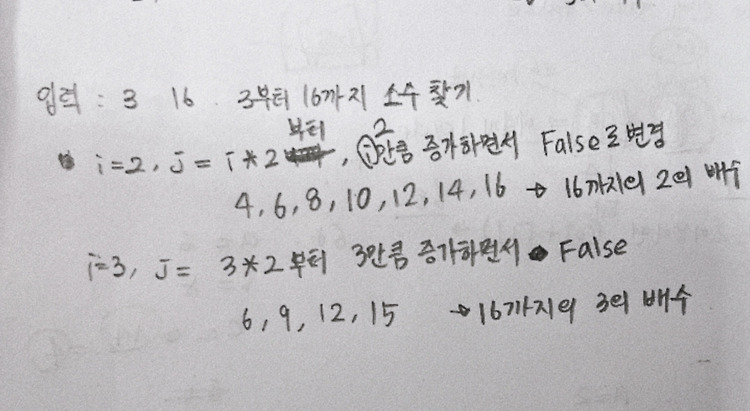 입력 : 3 16 3부터 16까지 소수 찾기.
i=2, j = i*2부터, ⓘ만큼 증가하면서 False로 변경
2
4, 6, 8, 10, 12, 14, 16 → 16까지의 2의 배수
i=3, j = 3*2부터 3만큼 증가하면서 False
6, 9, 12, 15 → 16까지의 3의 배수